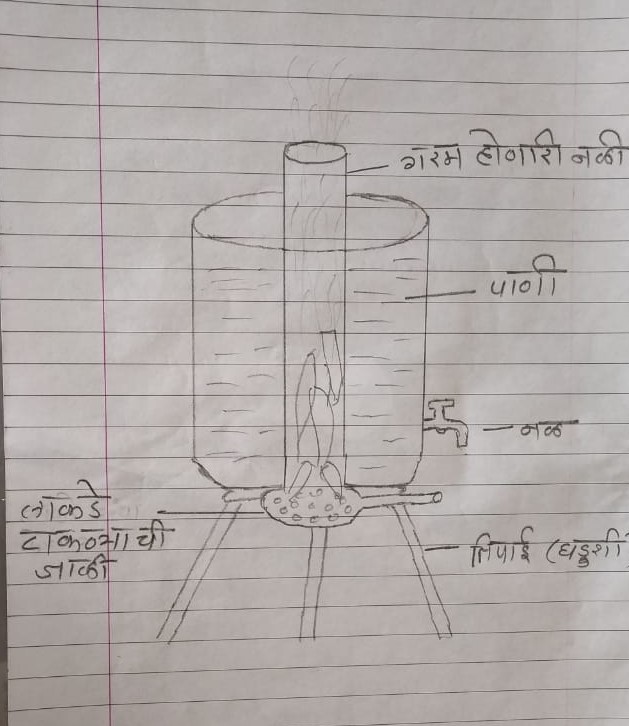 गरम होणारी नळी
पाणी
नळ
लाकडे
टाकण्याची
जाळी
तिपाई (घडुशी)